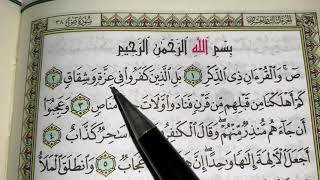 سُورَةُ صٓ ٣٨
بِسْمِ ٱللَّهِ ٱلرَّحْمَٰنِ ٱلرَّحِيمِ
صٓ وَٱلْقُرْءَانِ ذِى ٱلذِّكْرِ ١ بَلِ ٱلَّذِينَ كَفَرُوا۟ فِى عِزَّةٍ وَشِقَاقٍ ٢
كَمْ أَهْلَكْنَا مِن قَبْلِهِم مِّن قَرْنٍ فَنَادَوا۟ وَّلَاتَ ٣ وَعَجِبُوٓا۟
أَن جَآءَهُم مُّنذِرٌ مِّنْهُمْ وَقَالَ ٱلْكَٰفِرُونَ سَٰحِرٌ كَذَّابٌ ٤
أَجَعَلَ ٱلْءَالِهَةَ إِلَٰهًا وَٰحِدًا عُجَابٌ ٥ وَٱنطَلَقَ ٱلْمَلَأُ